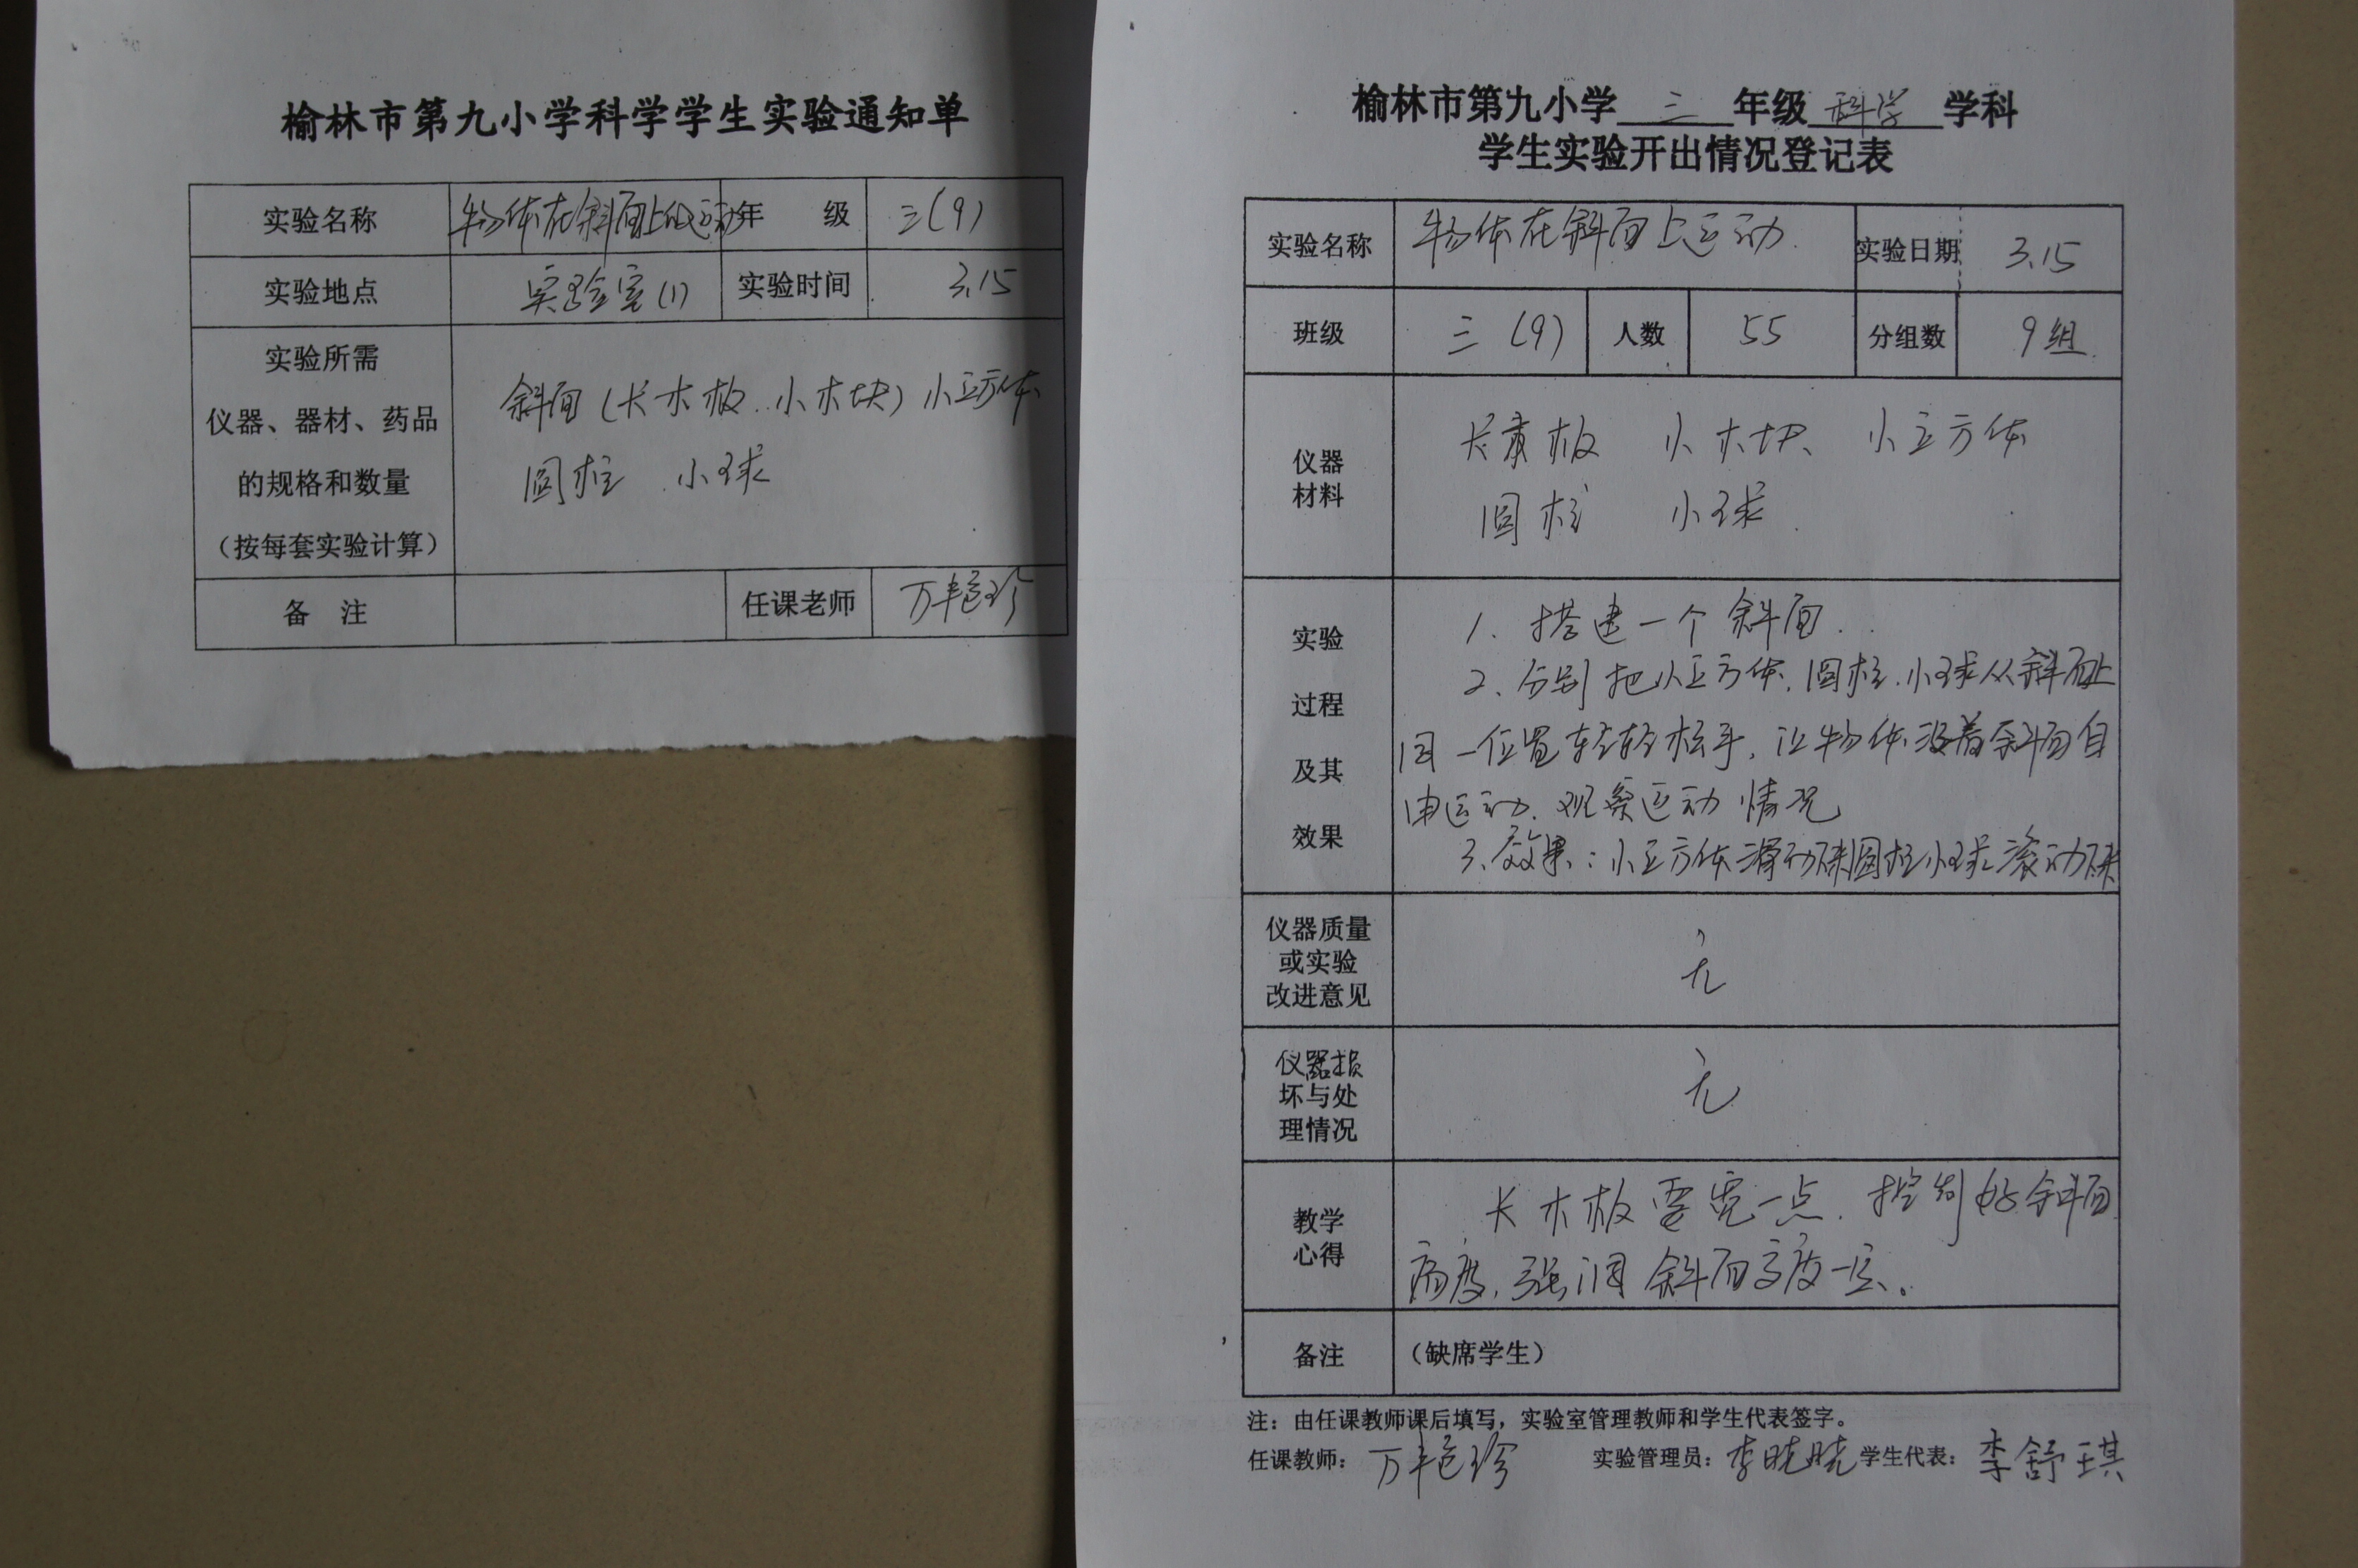 榆林市第九小学科学学生实验通知单
实验名称 物体在斜面上的运动 年 级 三(9)
实验地点 实验室(1) 实验时间 3.15
实验所需
仪器、器材、药品
的规格和数量
（按每套实验计算）
斜面(长木板.小木块) 小立方体
圆柱 小球
备 注 任课老师 万艳珍
榆林市第九小学 三 年级 科学 学科
学生实验开出情况登记表
实验名称 物体在斜面上运动. 实验日期 3.15
班级 三(9) 人数 55 分组数 9组
仪器
材料
长木板 小木块、 小立方体
圆柱 小球.
实验
过程
及其
效果
1. 搭建一个斜面.
2、分别把小立方体.圆柱.小球从斜面上
同一位置轻轻松手,让物体沿着斜面自
由运动.观察运动情况
3.效果:小立方体滑动下来圆柱小球滚动下来
仪器质量
或实验
改进意见
无
仪器损
坏与处
理情况
无
教学
心得
长木板要宽一点.控制好斜面
高度,强调斜面高度一定。
备注 （缺席学生）
注：由任课教师课后填写，实验室管理教师和学生代表签字。
任课教师： 万艳珍 实验管理员：李晓晓 学生代表：李舒琪